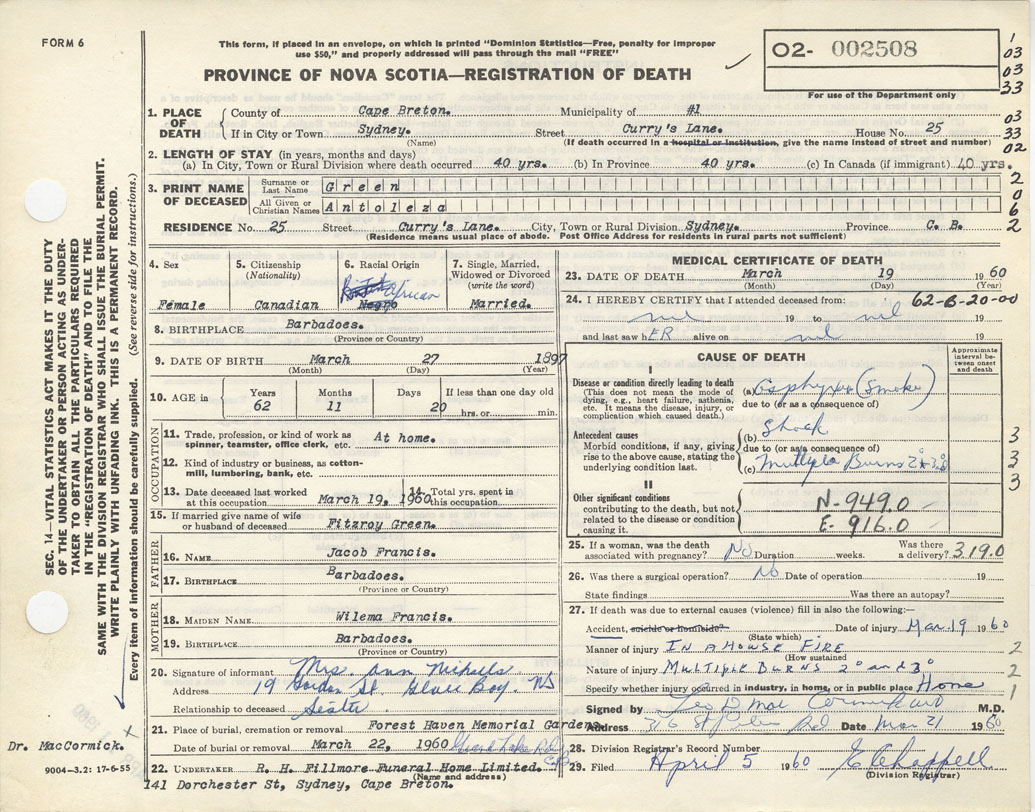 FORM 6
This form, if placed in an envelope, on which is printed "Dominion Statistics—Free, penalty for improper
use $50," and properly addressed will pass through the mail "FREE"
PROVINCE OF NOVA SCOTIA—REGISTRATION OF DEATH
02- 002508
For use of the Department only
1
03
03
33
03
33
02
2
0
6
2
1. PLACE OF DEATH
County of Cape Breton. Municipality of #1
If in City or Town Sydney. Street Curry's Lane. House No. 25
(Name) (If death occurred in a hospital or institution, give the name instead of street and number)
2. LENGTH OF STAY (in years, months and days)
(a) In City, Town or Rural Division where death occurred 40 yrs. (b) In Province 40 yrs. (c) In Canada (if immigrant) 40 yrs.
3. PRINT NAME OF DECEASED
Surname or Last Name Green
All Given or Christian Names Antoleza
RESIDENCE No. 25 Street Curry's Lane. City, Town or Rural Division Sydney. Province C. B.
(Residence means usual place of abode. Post Office Address for residents in rural parts not sufficient)
4. Sex
Female
5. Citizenship
(Nationality)
Canadian
6. Racial Origin
African
Negro
7. Single, Married,
Widowed or Divorced
(write the word)
Married.
8. BIRTHPLACE Barbadoes.
(Province or Country)
9. DATE OF BIRTH March 27 1897
(Month) (Day) (Year)
10. AGE in
Years Months Days If less than one day old
62 11 20 hrs. or min.
OCCUPATION
11. Trade, profession, or kind of work as
spinner, teamster, office clerk, etc. At home.
12. Kind of industry or business, as cotton-
mill, lumbering, bank, etc.
13. Date deceased last worked
at this occupation March 19, 1960
14. Total yrs. spent in
this occupation
15. If married give name of wife
or husband of deceased Fitzroy Green.
FATHER
16. NAME Jacob Francis.
17. BIRTHPLACE Barbadoes.
(Province or Country)
MOTHER
18. MAIDEN NAME Wilema Francis.
19. BIRTHPLACE Barbadoes.
(Province or Country)
20. Signature of informant Mrs Ann Nicholls
Address 19 Gordon St. Glace Bay. NS
Relationship to deceased Sister
21. Place of burial, cremation or removal Forest Haven Memorial Gardens.
Date of burial or removal March 22, 1960 Grand Lake Rd CB
22. UNDERTAKER R. H. Fillmore Funeral Home Limited.
(Name and address)
141 Dorchester St, Sydney, Cape Breton.
MEDICAL CERTIFICATE OF DEATH
23. DATE OF DEATH March 19 1960
(Month) (Day) (Year)
24. I HEREBY CERTIFY that I attended deceased from: 62-B-20-00
nil 19 to nil 19
and last saw hER alive on nil 19
CAUSE OF DEATH
Approximate interval between onset and death
I
Disease or condition directly leading to death
(This does not mean the mode of
dying, e.g., heart failure, asthenia,
etc. It means the disease, injury, or
complication which caused death.)
(a) Asphyxia (Smoke)
due to (or as a consequence of)
Antecedent causes
Morbid conditions, if any, giving
rise to the above cause, stating the
underlying condition last.
(b) Shock
due to (or as a consequence of)
(c) Multiple Burns 2° + 3°
3
3
3
II
Other significant conditions
contributing to the death, but not
related to the disease or condition
causing it.
N-949.0
E-916.0
25. If a woman, was the death
associated with pregnancy? No Duration weeks. Was there
a delivery? 319.0
26. Was there a surgical operation? No Date of operation 19
State findings Was there an autopsy?
27. If death was due to external causes (violence) fill in also the following:—
Accident, suicide or homicide? Date of injury Mar. 19 1960
(State which)
Manner of injury IN A HOUSE FIRE 2
(How sustained
Nature of injury MULTIPLE BURNS 2° and 3° 2
Specify whether injury occurred in industry, in home, or in public place Home 1
Signed by M.D.
Address 316 Rd Date Mar 21 1960
28. Division Registrar's Record Number
29. Filed April 5 1960 E Chappell
(Division Registrar)
SEC. 14—VITAL STATISTICS ACT MAKES IT THE DUTY
OF THE UNDERTAKER OR PERSON ACTING AS UNDER-
TAKER TO OBTAIN ALL THE PARTICULARS REQUIRED
IN THE "REGISTRATION OF DEATH" AND TO FILE THE
SAME WITH THE DIVISION REGISTRAR WHO SHALL ISSUE THE BURIAL PERMIT.
WRITE PLAINLY WITH UNFADING INK. THIS IS A PERMANENT RECORD.
Every item of information should be carefully supplied. (See reverse side for instructions.)
Dr. MacCormick.
9004—3.2: 17-6-55